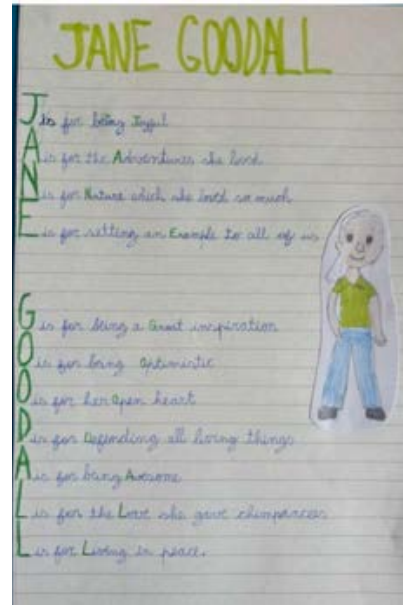 JANE GOODALL
J is for being Joyful
A is for the Adventures she lived
N is for Nature which she loved so much
E is for setting an Example to all of us
G is for being a Great inspiration
O is for being Optimistic
O is for her Open heart
D is for Defending all living things
A is for being Awesome
L is for the Love she gave chimpanzees
L is for Living in peace.